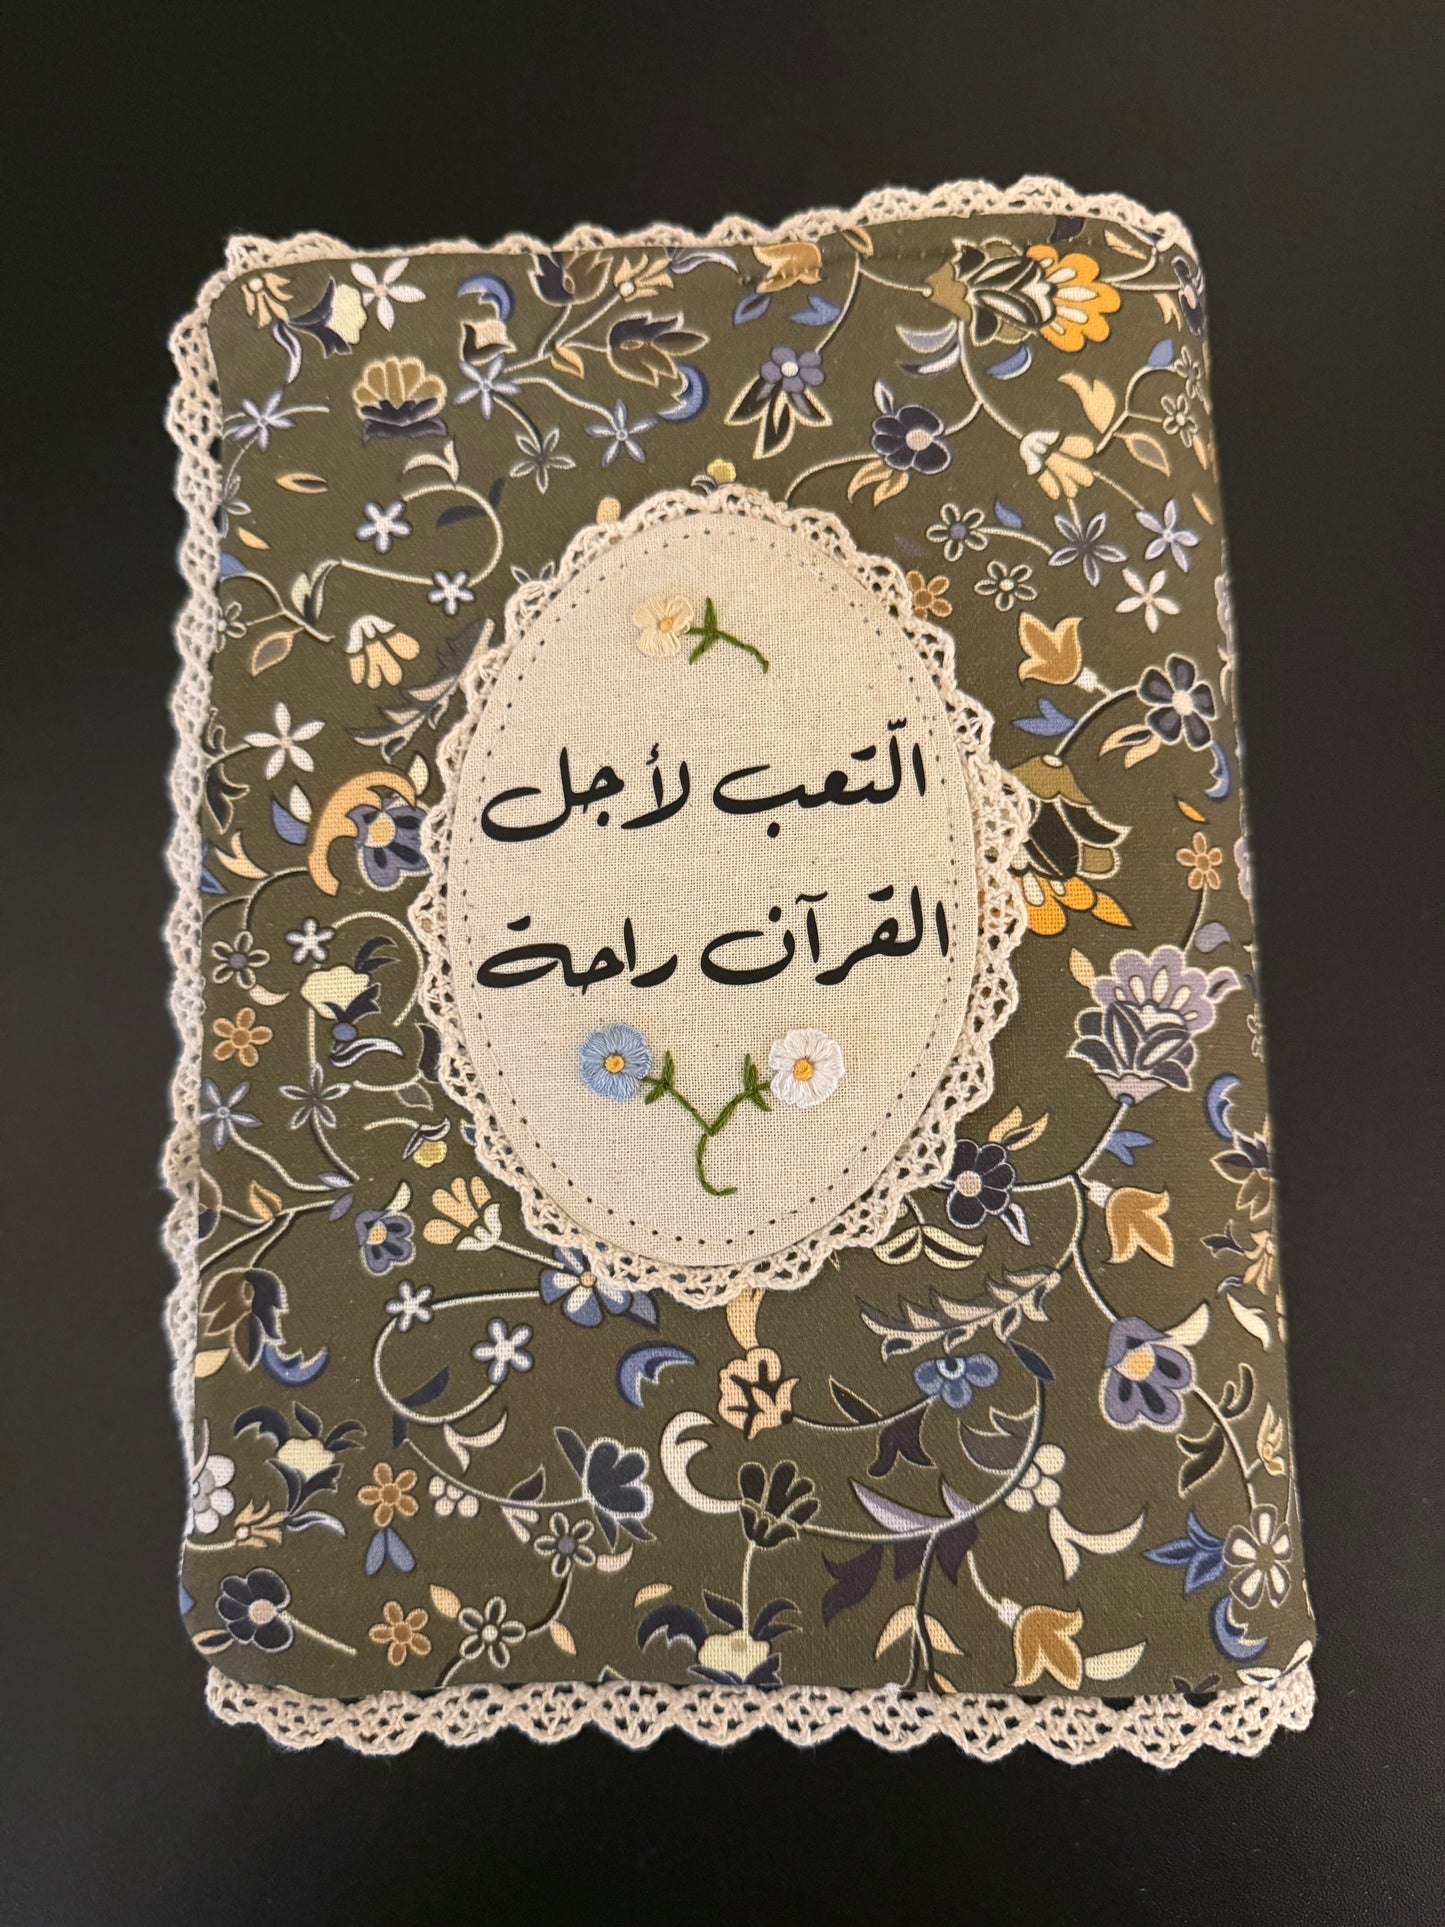 التّعب لأجل
القرآن راحة